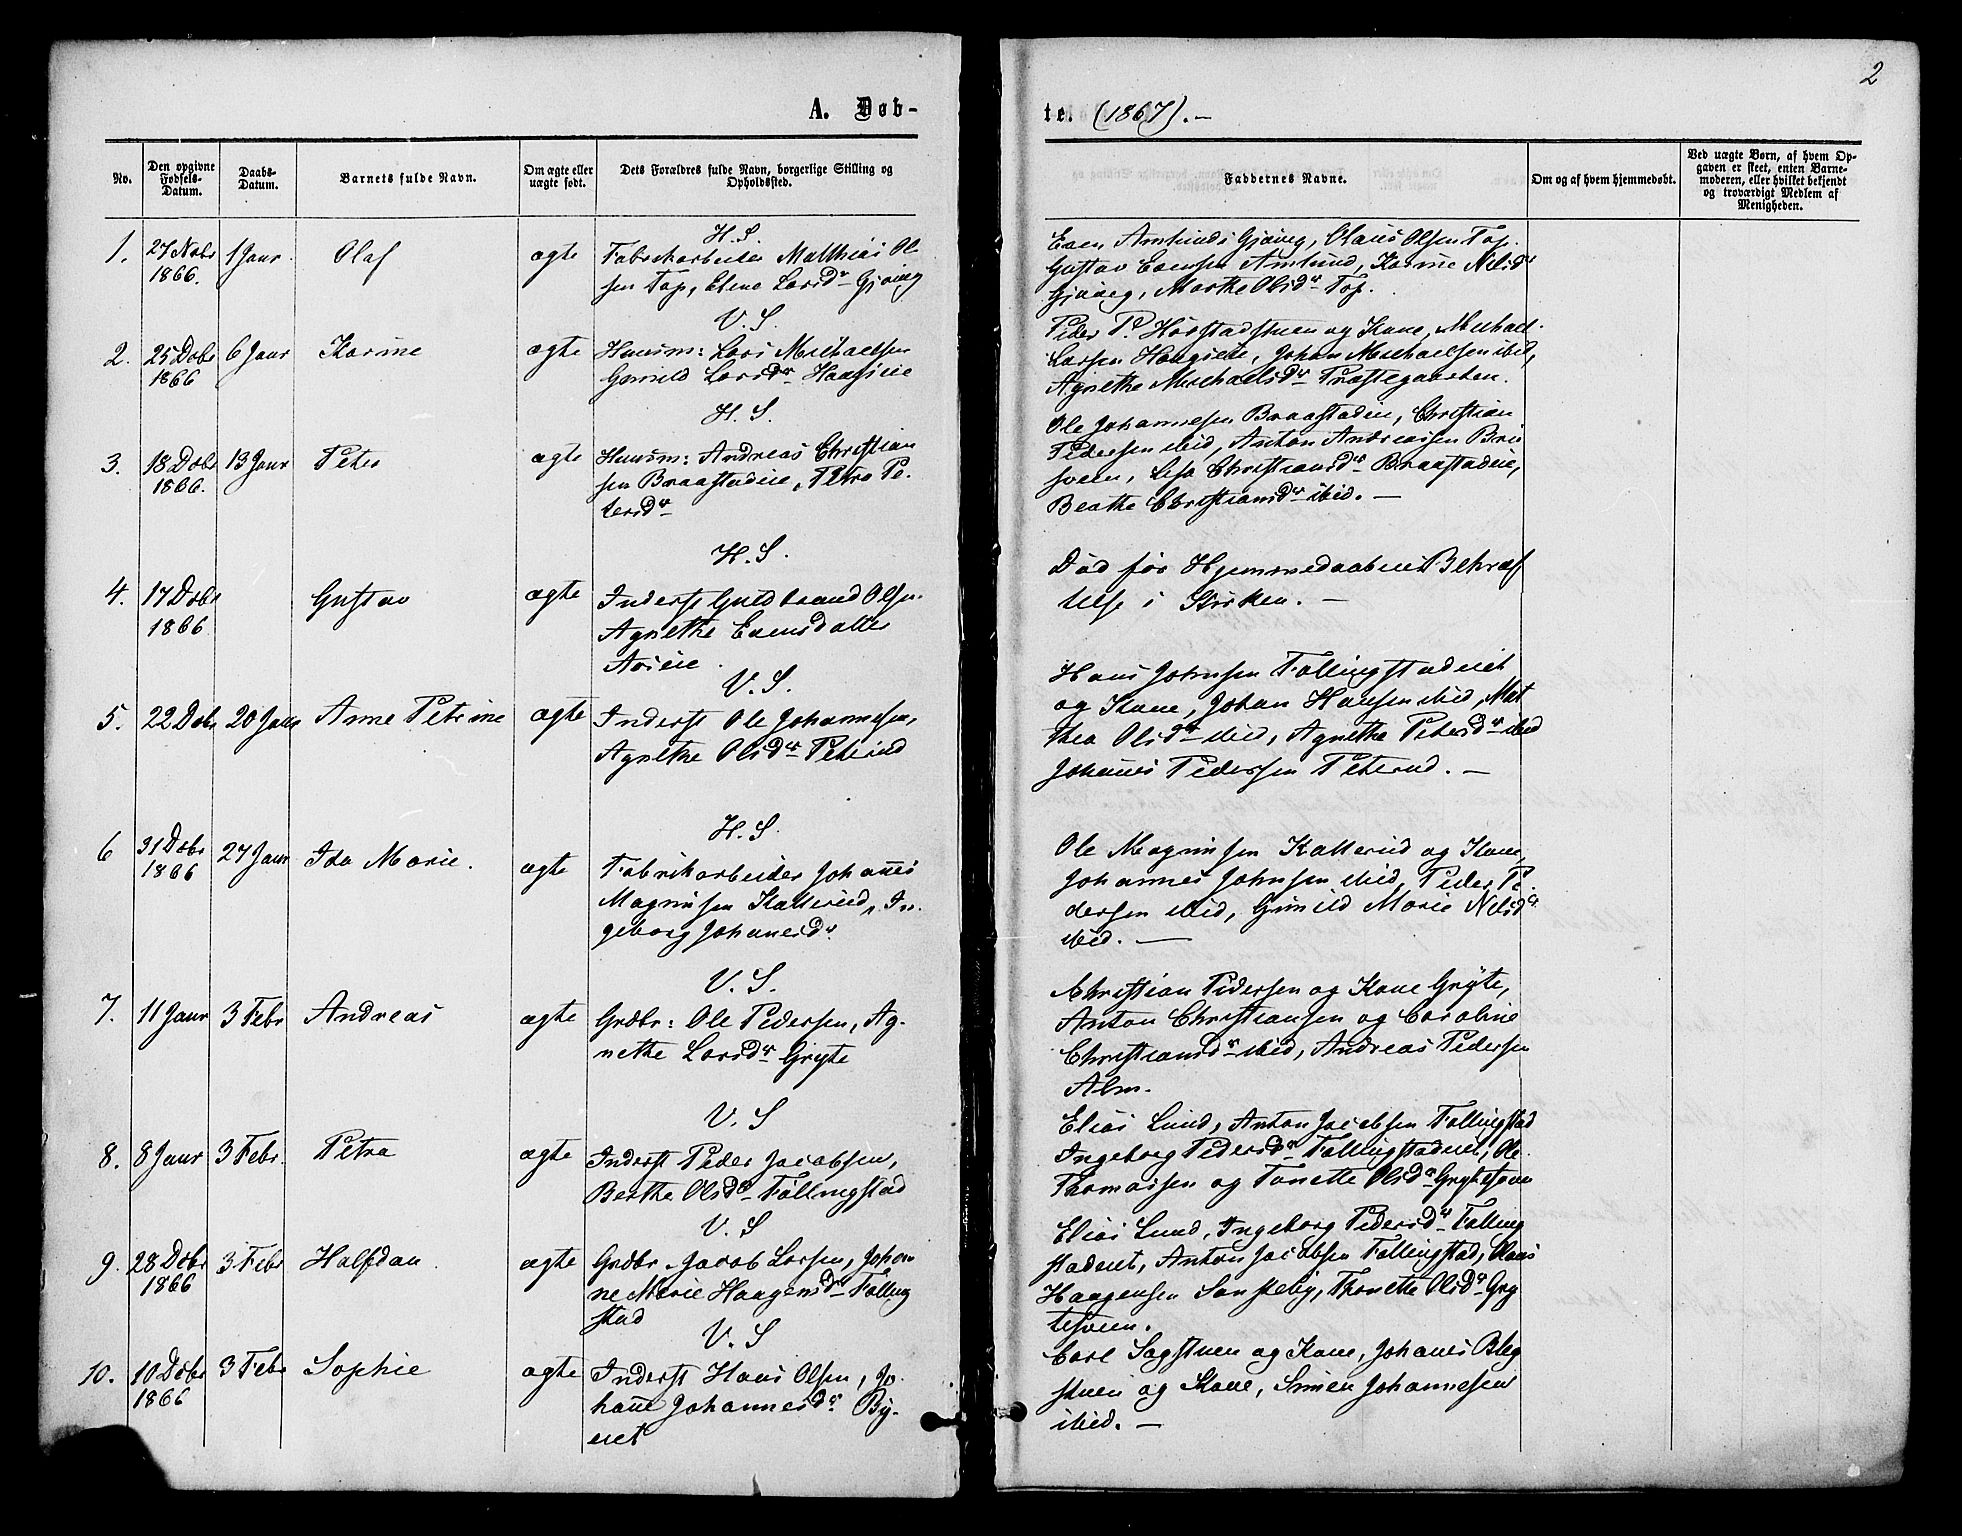 2
A. Døb-
te. (1867). -
No.
Den opgivne
Fødsels-
Datum.
Daabs-
Datum.
Barnets fulde Navn.
Om ægte eller
uægte født.
Dets Forældres fulde Navn, borgerlige Stilling og
Opholdssted.
Faddernes Navne.
Om og af hvem hjemmedøbt.
Ved uægte Børn, af hvem Op-
gaven er skeet, enten Barne-
moderen, eller hvilket bekjendt
og troværdigt Medlem af
Menigheden.
H. S.
1. 27 Nobr 1 Janr Olaf ægte Fabrikarbeider Matthias Ol-
1866. sen Fap, Elene Larsdr Gjøveg
Even Amlunds Gjøveg, Claus Olsen Fap.
Gustav Evensen Amlund, Karine Nilsdr
Gjøveg, Marthe Olsdr Fap.
V. S.
2. 25 Debr 6 Janr Karine ægte Huusm: Lars Michaelsen
1866 Gunild Larsdr Haagseie
Peder P. Hørstadstuen og Kone, Michael
Larsen Haagseie, Johan Michaelsen ibid,
Agnethe Michaelsdr Præstegaarden.
H. S.
3. 18 Debr 13 Janr Peter ægte Huusm: Andreas Christian
1866. sen Braastadeie, Petra Pe-
tersdr
Ole Johannesen Braastadeie, Christian
Pedersen ibid, Anton Andreassen Bri
sveen, Lisa Christiansdr Braastadeie,
Beathe Christiansdr ibid. -
H. S.
4. 17 Debr Gustav ægte Inderst Guldbrand Olsen.
1866 Agnethe Evensdatter
Aaseie.
Død før Hjemmedaabens Bekræf
telse i Kirken. -
V. S.
5. 22 Debr 20 Janr Anne Petrine ægte Inderst Ole Johannesen,
Agnethe Olsdr Peterud
Hans Johnsen Føllingstadeiet
og Kone, Johan Hansen ibid, Mat
thea Olsdr ibid, Agnethe Petersdr ibid
Johanes Pedersen Peterud. -
H. S.
6 31 Debr 27 Janr Ida Marie. ægte Fabrikarbeider Johanes
1866 Magnusen Kallerud, In-
geborg Johanesdr
Ole Magnusen Kallerud og Kone,
Johannes Johnsen ibid, Peder Pe-
dersen ibid, Gunild Marie Nilsdr
ibid. -
V. S.
7. 11 Janr 3 Febr Andreas ægte Grdbr: Ole Pedersen, Ag-
nethe Larsdr Gryte
Christian Pedersen og Kone Gryte,
Anton Christiansen og Caroline
Christiansdr ibid, Andreas Pedersen
Alm.
V. S
8. 8 Janr 3 Febr. Petra ægte Inderst Peder Jacobsen,
Berthe Olsdr Føllingstad
Elias Lund, Anton Jacobsen Føllingstad
Ingeborg Pedersdr Føllingstadeiet, Ole
Thomassen og Tonette Olsdr Grytesveen
V. S
9. 28 Debr 3 Febr Halfdan ægte Grdbr Jacob Larsen, Johan-
1866 ne Marie Haagensdr Følling
stad
Elias Lund, Ingeborg Pedersdr Følling
stadeiet, Anton Jacobsen Føllingstad, Claus
Haagensen Sønsteby, Thonette Olsdr Gry
tesveen.
V. S
10. 10 Debr 3 Febr Sophie ægte Inderst Hans Olsen, Jo-
1866 hane Johannesdr By-
eiet
Carl Sagstuen og Kone, Johanes Bleg
stuen og Kone, Simen Johannesen
ibid. -